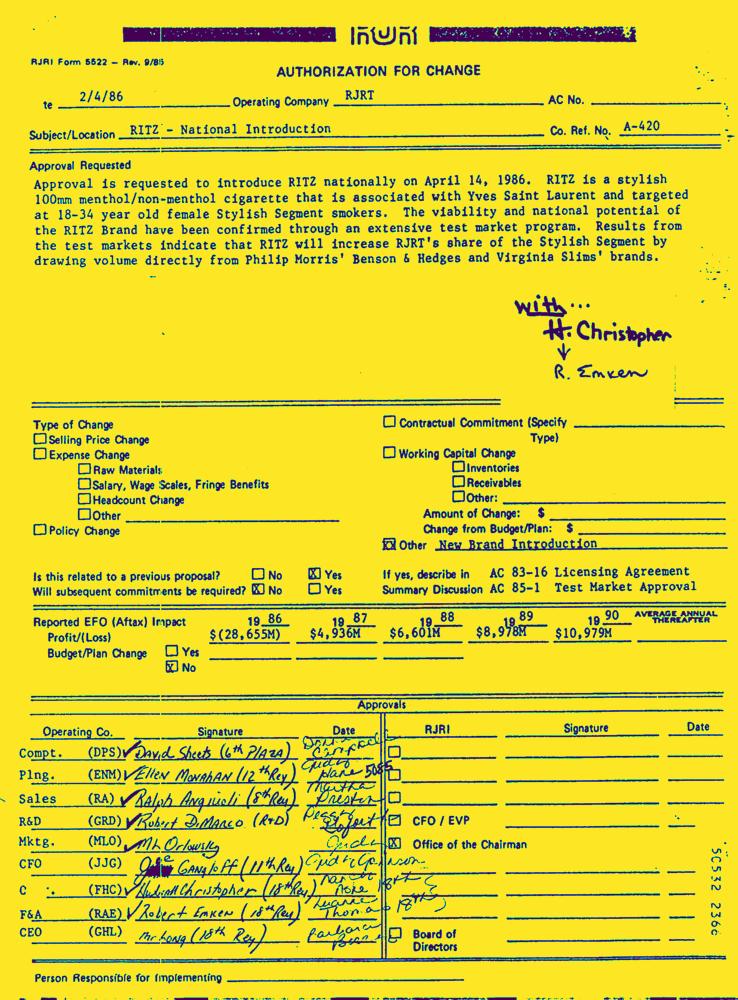 RJRI Form 5522 – Rev. 9/85
AUTHORIZATION FOR CHANGE
te 2/4/86 Operating Company RJRT AC No.
Subject/Location RITZ - National Introduction Co. Ref. No. A-420
Approval Requested
Approval is requested to introduce RITZ nationally on April 14, 1986. RITZ is a stylish
100mm menthol/non-menthol cigarette that is associated with Yves Saint Laurent and targeted
at 18-34 year old female Stylish Segment smokers. The viability and national potential of
the RITZ Brand have been confirmed through an extensive test market program. Results from
the test markets indicate that RITZ will increase RJRT's share of the Stylish Segment by
drawing volume directly from Philip Morris' Benson & Hedges and Virginia Slims' brands.
with...
H. Christopher
R. Emken
Type of Change
Selling Price Change
Expense Change
Raw Materials
Salary, Wage Scales, Fringe Benefits
Headcount Change
Other
Policy Change
Contractual Commitment (Specify
Type)
Working Capital Change
Inventories
Receivables
Other:
Amount of Change: $
Change from Budget/Plan: $
Other New Brand Introduction
Is this related to a previous proposal? No X Yes If yes, describe in AC 83-16 Licensing Agreement
Will subsequent commitments be required? X No Yes Summary Discussion AC 85-1 Test Market Approval
Reported EFO (Aftax) Impact 19 86 19 87 19 88 19 89 19 90 AVERAGE ANNUAL THEREAFTER
Profit/(Loss) $(28,655M) $4,936M $6,601M $8,978M $10,979M
Budget/Plan Change Yes
X No
Approvals
Operating Co. Signature Date RJRI Signature Date
Compt. (DPS) David Sheets (6th Plaza)
Plng. (ENM) Ellen Monahan (12th Rey) 5085
Sales (RA) Ralph Angiuoli (8th Rey) Martha Preston
R&D (GRD) Robert DiMarco (R+D) Peggy CFO / EVP
Mktg. (MLO) Mr Orlowsky X Office of the Chairman
CFO (JJG) Joe Gangloff (11th Rey)
C (FHC) Christopher (18th Rey) Nancy 18th
F&A (RAE) Robert Emken (18th Rey) 18th
CEO (GHL) Mr Long (18th Rey) Barbara Board of
Directors
Person Responsible for Implementing
50532 2366